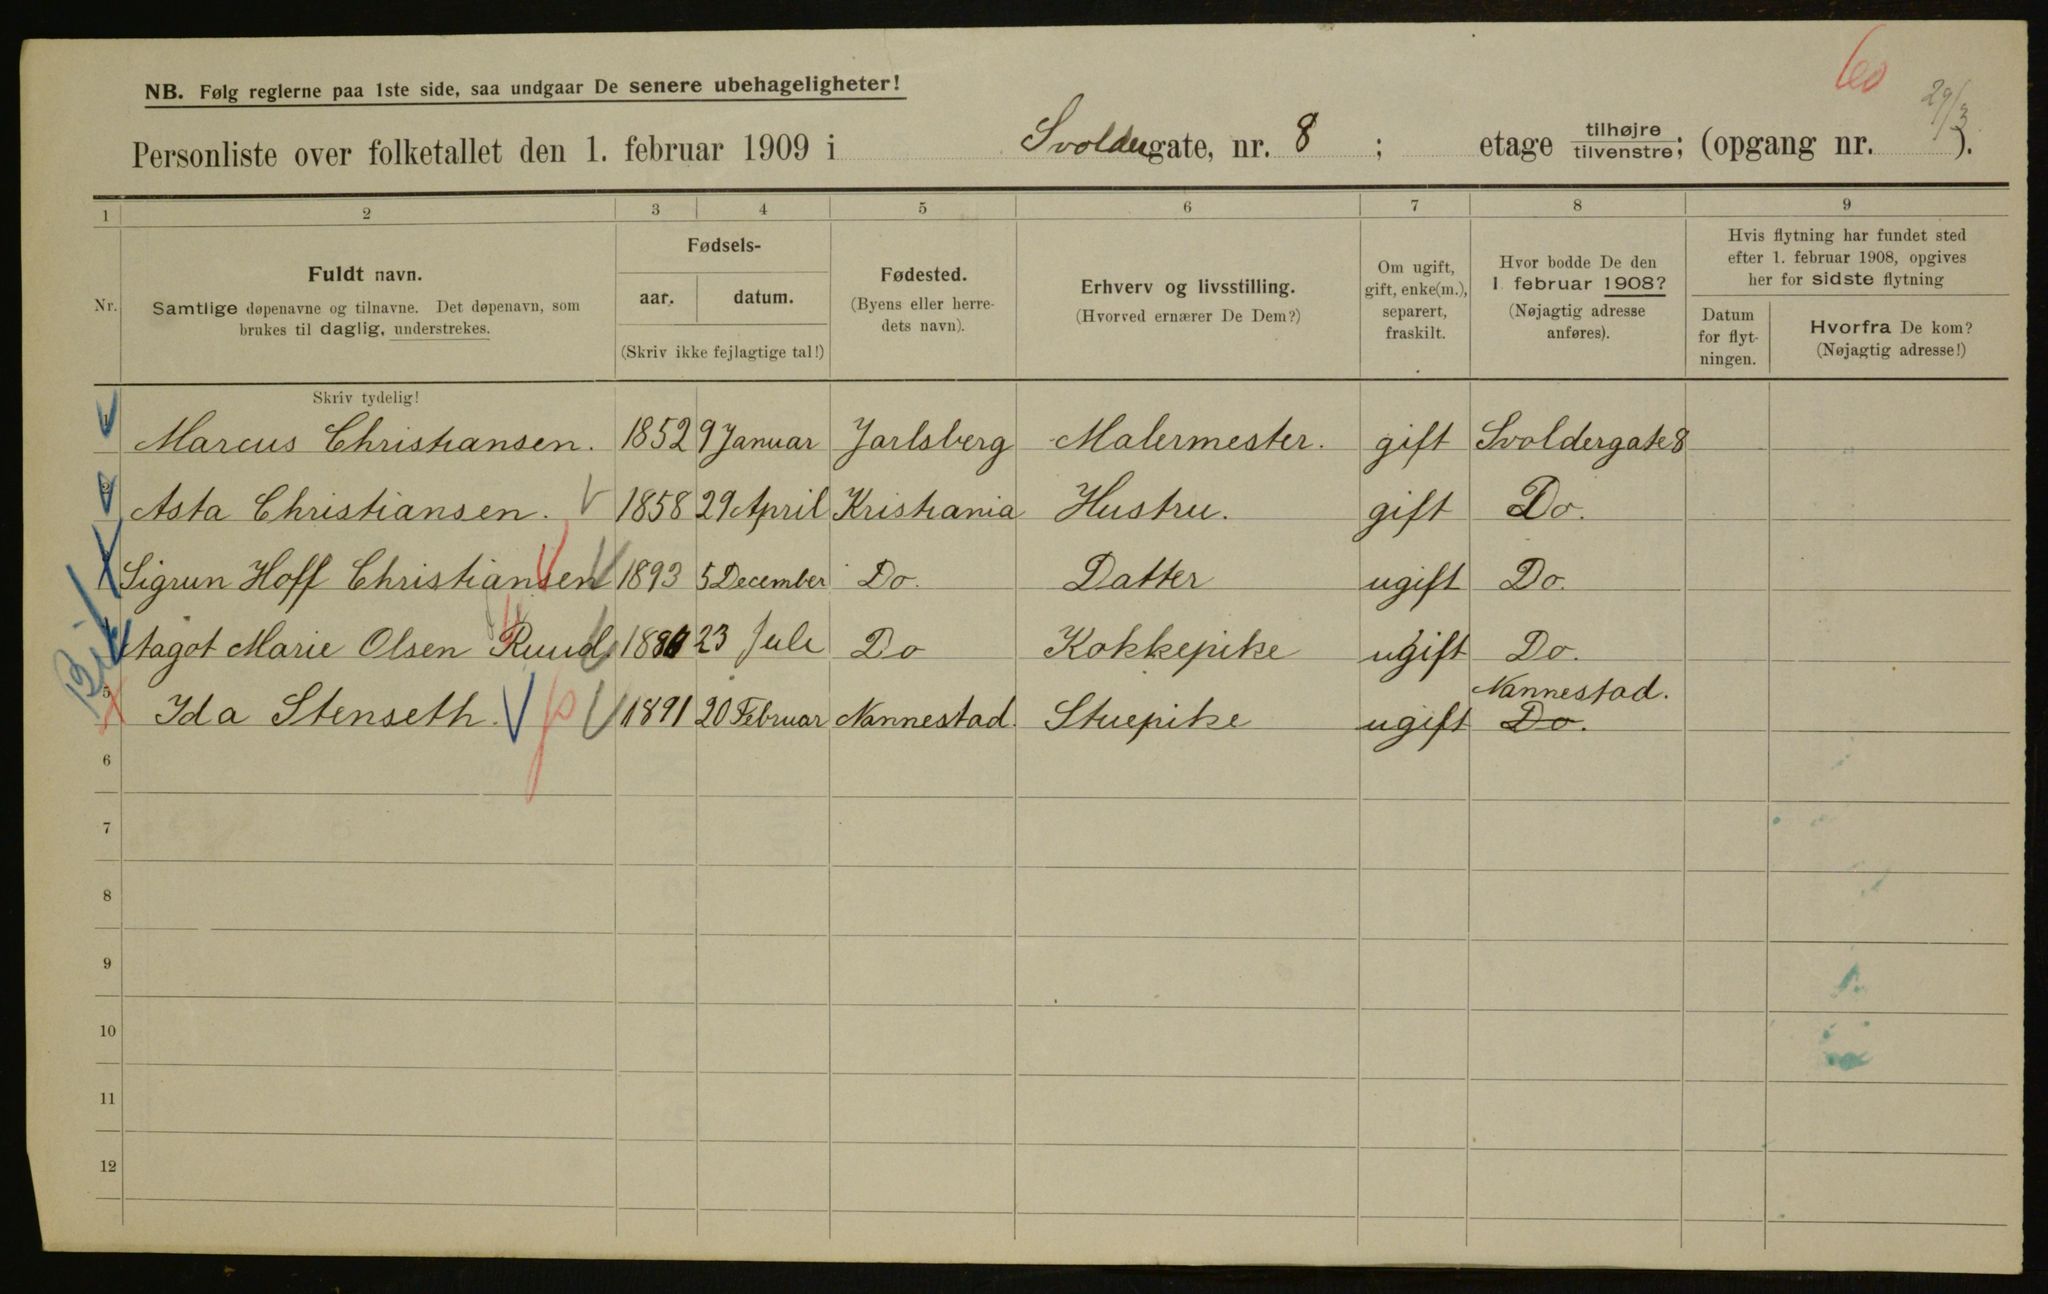 60
29/3
NB. Følg reglerne paa 1ste side, saa undgaar De senere ubehageligheter!
Personliste over folketallet den 1. februar 1909 i Svoldergate, nr. 8 ; etage tilhøjre/tilvenstre; (opgang nr. ).
1 2 3 4 5 6 7 8 9
Nr.
Fuldt navn.
Samtlige døpenavne og tilnavne. Det døpenavn, som
brukes til daglig, understrekes.
Fødsels-
aar. datum.
(Skriv ikke fejlagtige tal!)
Fødested.
(Byens eller herre-
dets navn).
Erhverv og livsstilling.
(Hvorved ernærer De Dem?)
Om ugift,
gift, enke(m.),
separert,
fraskilt.
Hvor bodde De den
1. februar 1908?
(Nøjagtig adresse
anføres).
Hvis flytning har fundet sted
efter 1. februar 1908, opgives
her for sidste flytning
Datum
for flyt-
ningen.
Hvorfra De kom?
(Nøjagtig adresse!)
Skriv tydelig!
1 Marcus Christiansen. 1852 9 Januar Jarlsberg Malermester. gift Svoldergate 8
2 Asta Christiansen. 1858 29 April Kristiania Hustru. gift Do.
3 Sigrun Hoff Christiansen 1893 5 December Do. Datter ugift Do.
4 Aagot Marie Olsen Ruud 23 Juli Do Kokkepike ugift Do.
Nannestad.
5 Ida Stenseth. 1891 20 Februar Nannestad. Stuepike ugift Do.
6
7
8
9
10
11
12